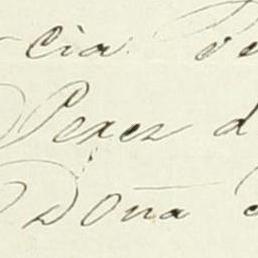 cia ve
Perez d
Doña